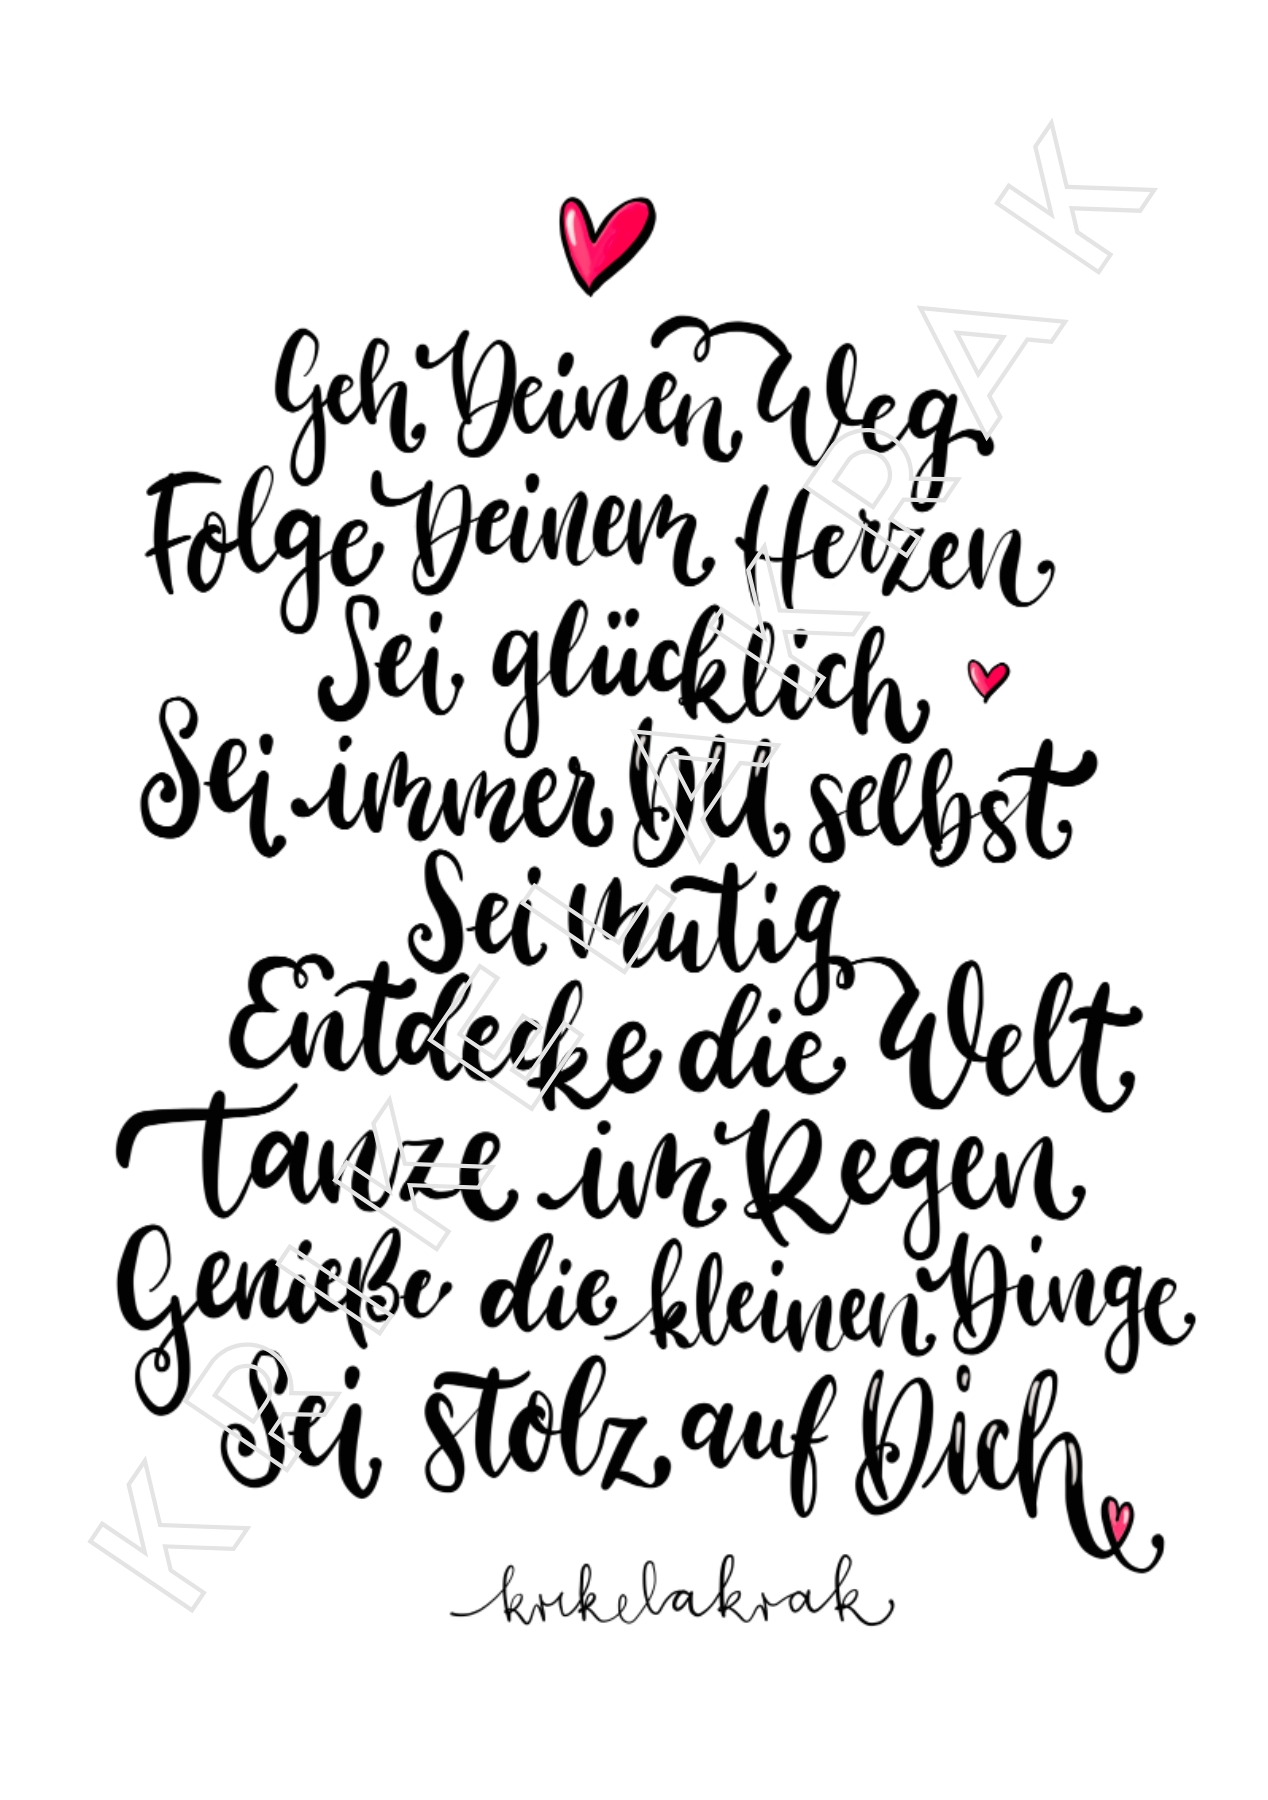 Geh Deinen Weg
Folge Deinem Herzen
Sei glücklich
Sei immer DU selbst
Sei mutig
Entdecke die Welt
Tanze im Regen
Genieße die kleinen Dinge
Sei stolz auf Dich
krikelakrak
KRIKELAKRAK